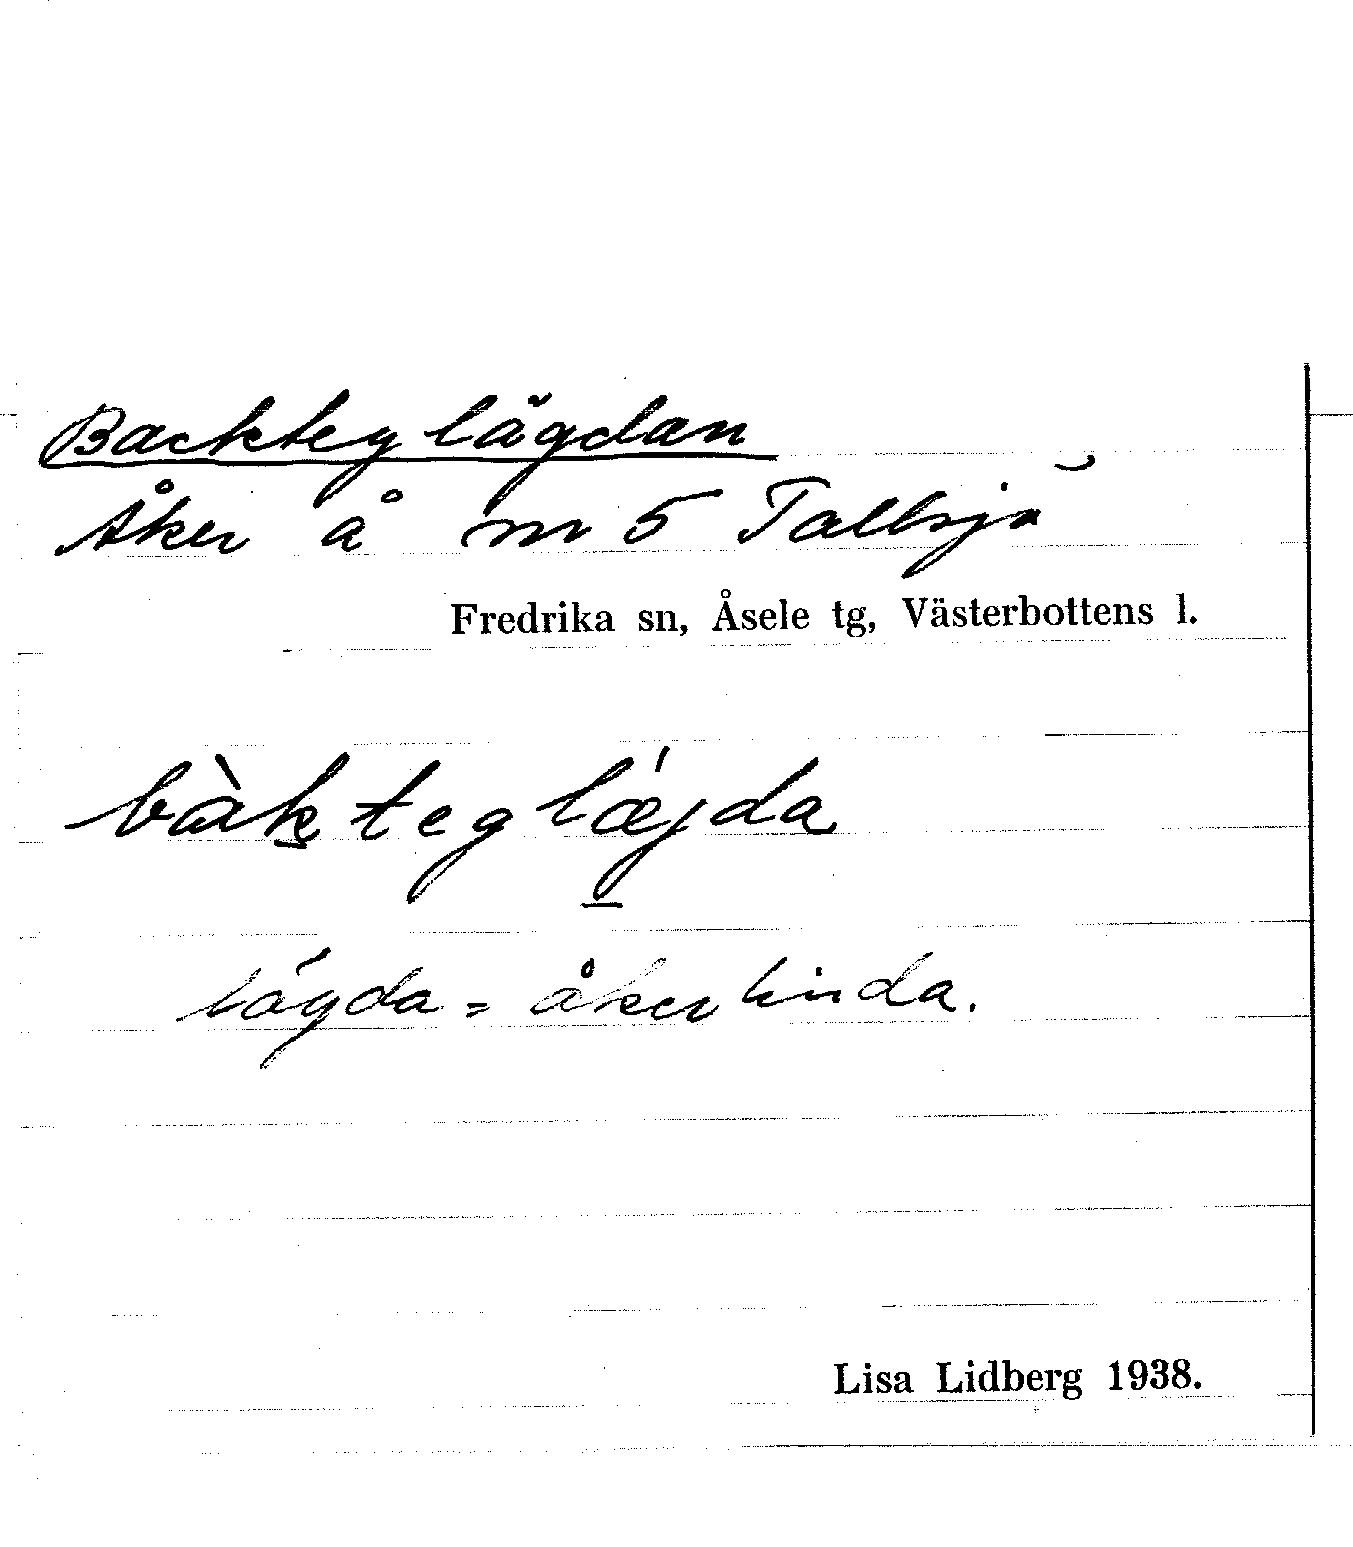 Backteglägdan
Åker å nr 5 Tallsjö
Fredrika sn, Åsele tg, Västerbottens l.
bàk̲teglǽj̲da
lägda = åkerlinda.
Lisa Lidberg 1938.